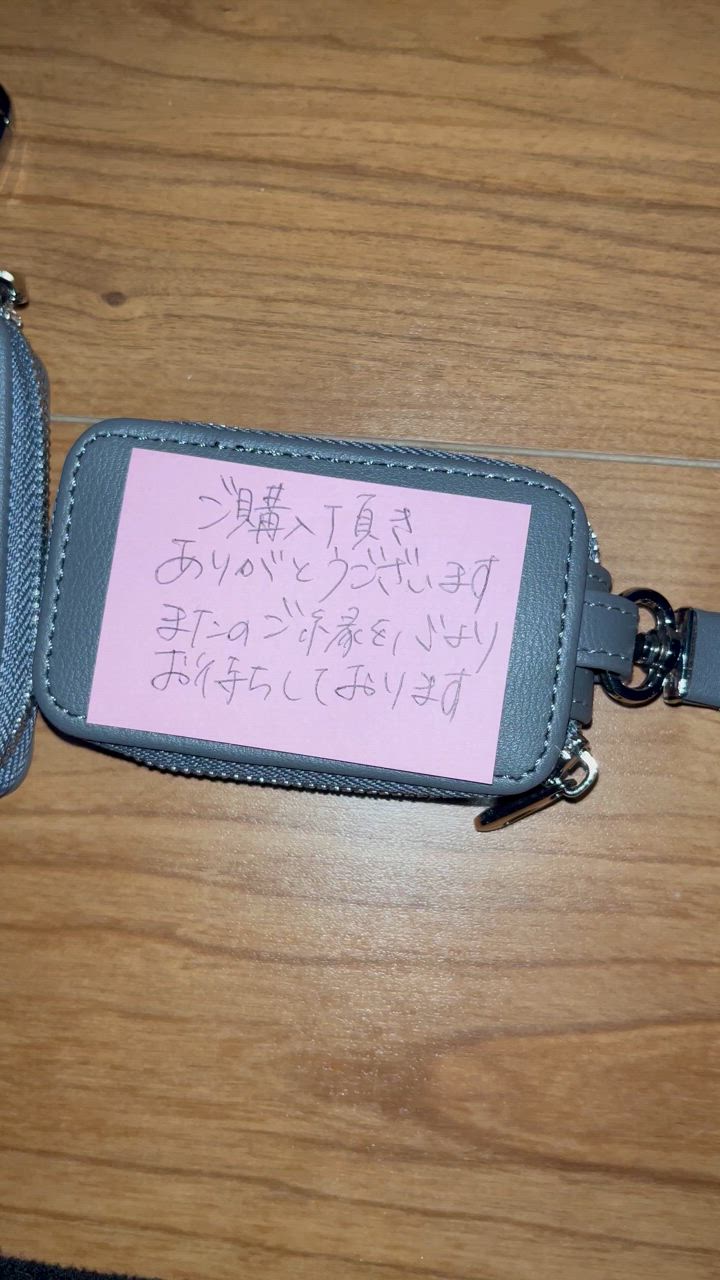 ご購入頂き
ありがとうございます
またのご縁を心より
お待ちしております